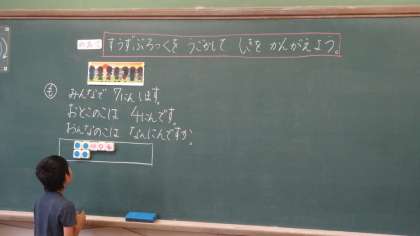 めあて
すうずぶろっくを うごかして しきを かんがえよう。
も
みんなで 7にんいます。
おとこのこは 4にんです。
おんなのこは なんにんですか。